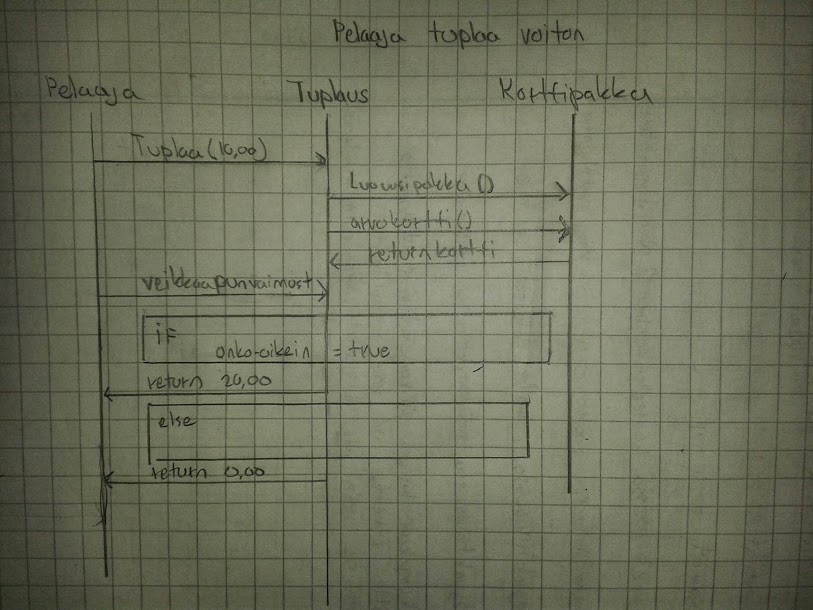 Pelaaja tuplaa voiton
Pelaaja Tuplaus Korttipakka
Tuplaa(10,00)
Luouusipakka()
arvokortti()
return kortti
veikkaapunvaimost
if
onko-oikein = true
return 20,00
else
return 0,00